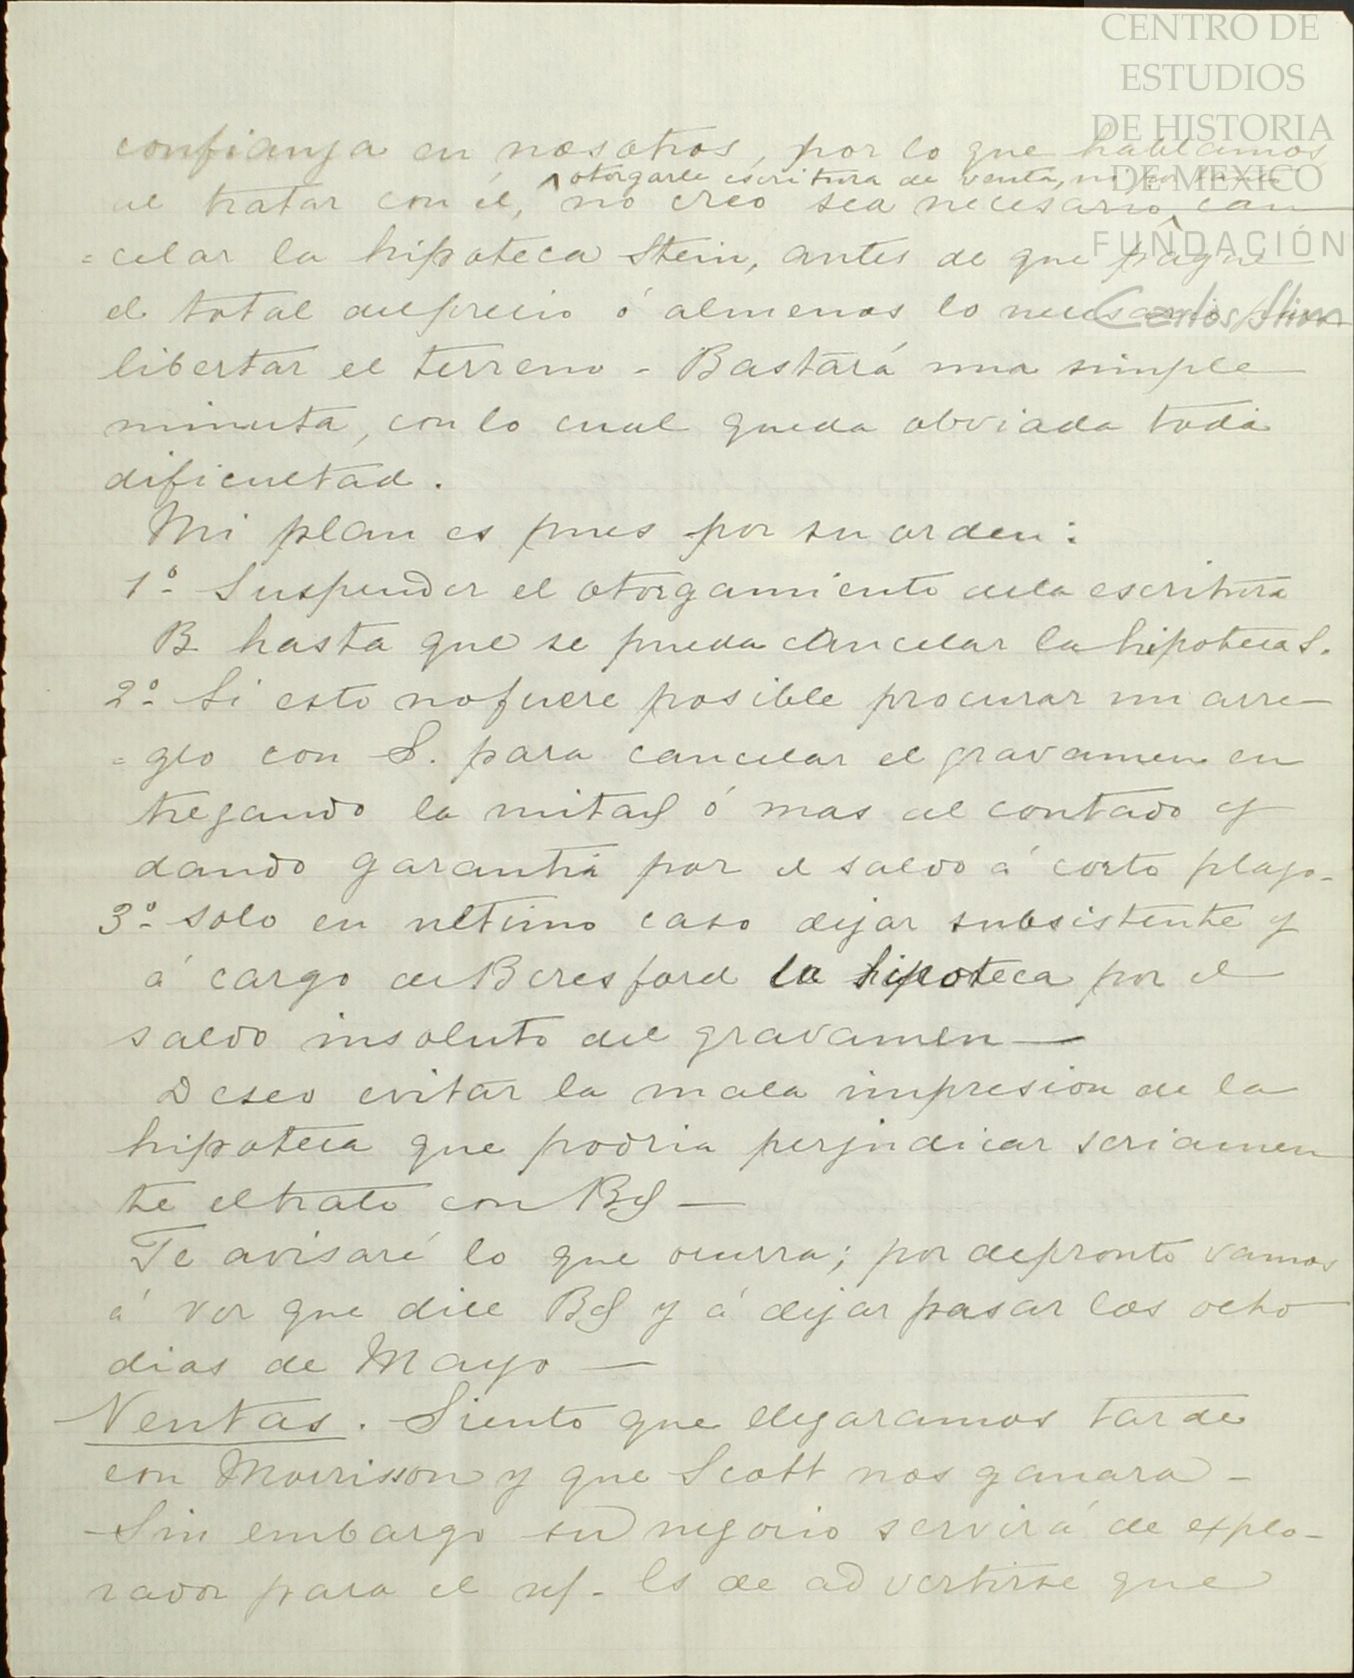 CENTRO DE
ESTUDIOS
DE HISTORIA
DE MEXICO
FUNDACIÓN
Carlos Slim
confianza en nosotros, por lo que hablamos
otorgarle escritura de venta, ni por tanto
al tratar con él, no creo sea necesario can
=celar la hipoteca Stein, antes de que pague
el total delprecio ó almenos lo necesario para
libertar el terreno - Bastará una simple
minuta, con lo cual queda obviada toda
dificultad.
Mi plan es pues por su orden:
1º- Suspender el otorgamiento dela escritura
B hasta que se pueda cancelar la hipoteca S.
2º- Si esto nofuere posible procurar un arre-
=glo con S. para cancelar el gravamen en
tregando la mitad ó mas al contado y
dando garantia por el saldo á corto plazo-
3º- solo en ultimo caso dejar subsistente y
á cargo de Beresford la hipoteca por el
saldo insoluto del gravamen—
Deseo evitar la mala impresion de la
hipoteca que podria perjudicar seriamen
te eltrato con Bd—
Te avisaré lo que ocurra; por depronto vamos
á ver que dice Bd y á dejar pasar los ocho
dias de Mayo—
Ventas. Siento que llegaramos tarde
con Morrisson y que Scott nos ganara-
Sin embargo su negocio servirá de explo-
rador para el nf- Es de advertirse que